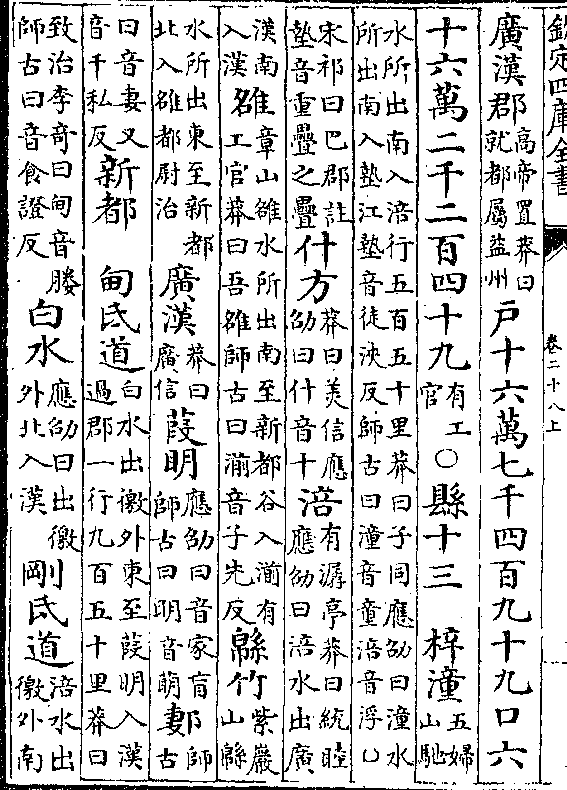 欽定四庫全書
卷二十八上
廣漢郡高帝置莽曰就都屬益州户十六萬七千四百九十九口六
十六萬二千二百四十九有工官○縣十三 梓潼五婦山馳
水所出南入涪行五百五十里莽曰子同應劭曰潼水所出南入墊江墊音徒浹反師古曰潼音童涪音浮○
宋祁曰巴郡註墊音重疊之疊什方莽曰美信應劭曰什音十涪有潺亭莽曰統睦應劭曰涪水出廣
漢南入漢雒章山雒水所出南至新都谷入湔有工官莽曰吾雒師古曰湔音子先反緜竹紫巖山緜
水所出東至新都北入雒都尉治廣漢莽曰廣信葭明應劭曰音家盲師古曰明音萌郪師古
曰音妻又音千私反新都 甸氐道白水出徼外東至葭明入漢過郡一行九百五十里莽曰
致治李奇曰甸音媵師古曰音食證反白水應劭曰出徼外北入漢剛氐道涪水出徼外南